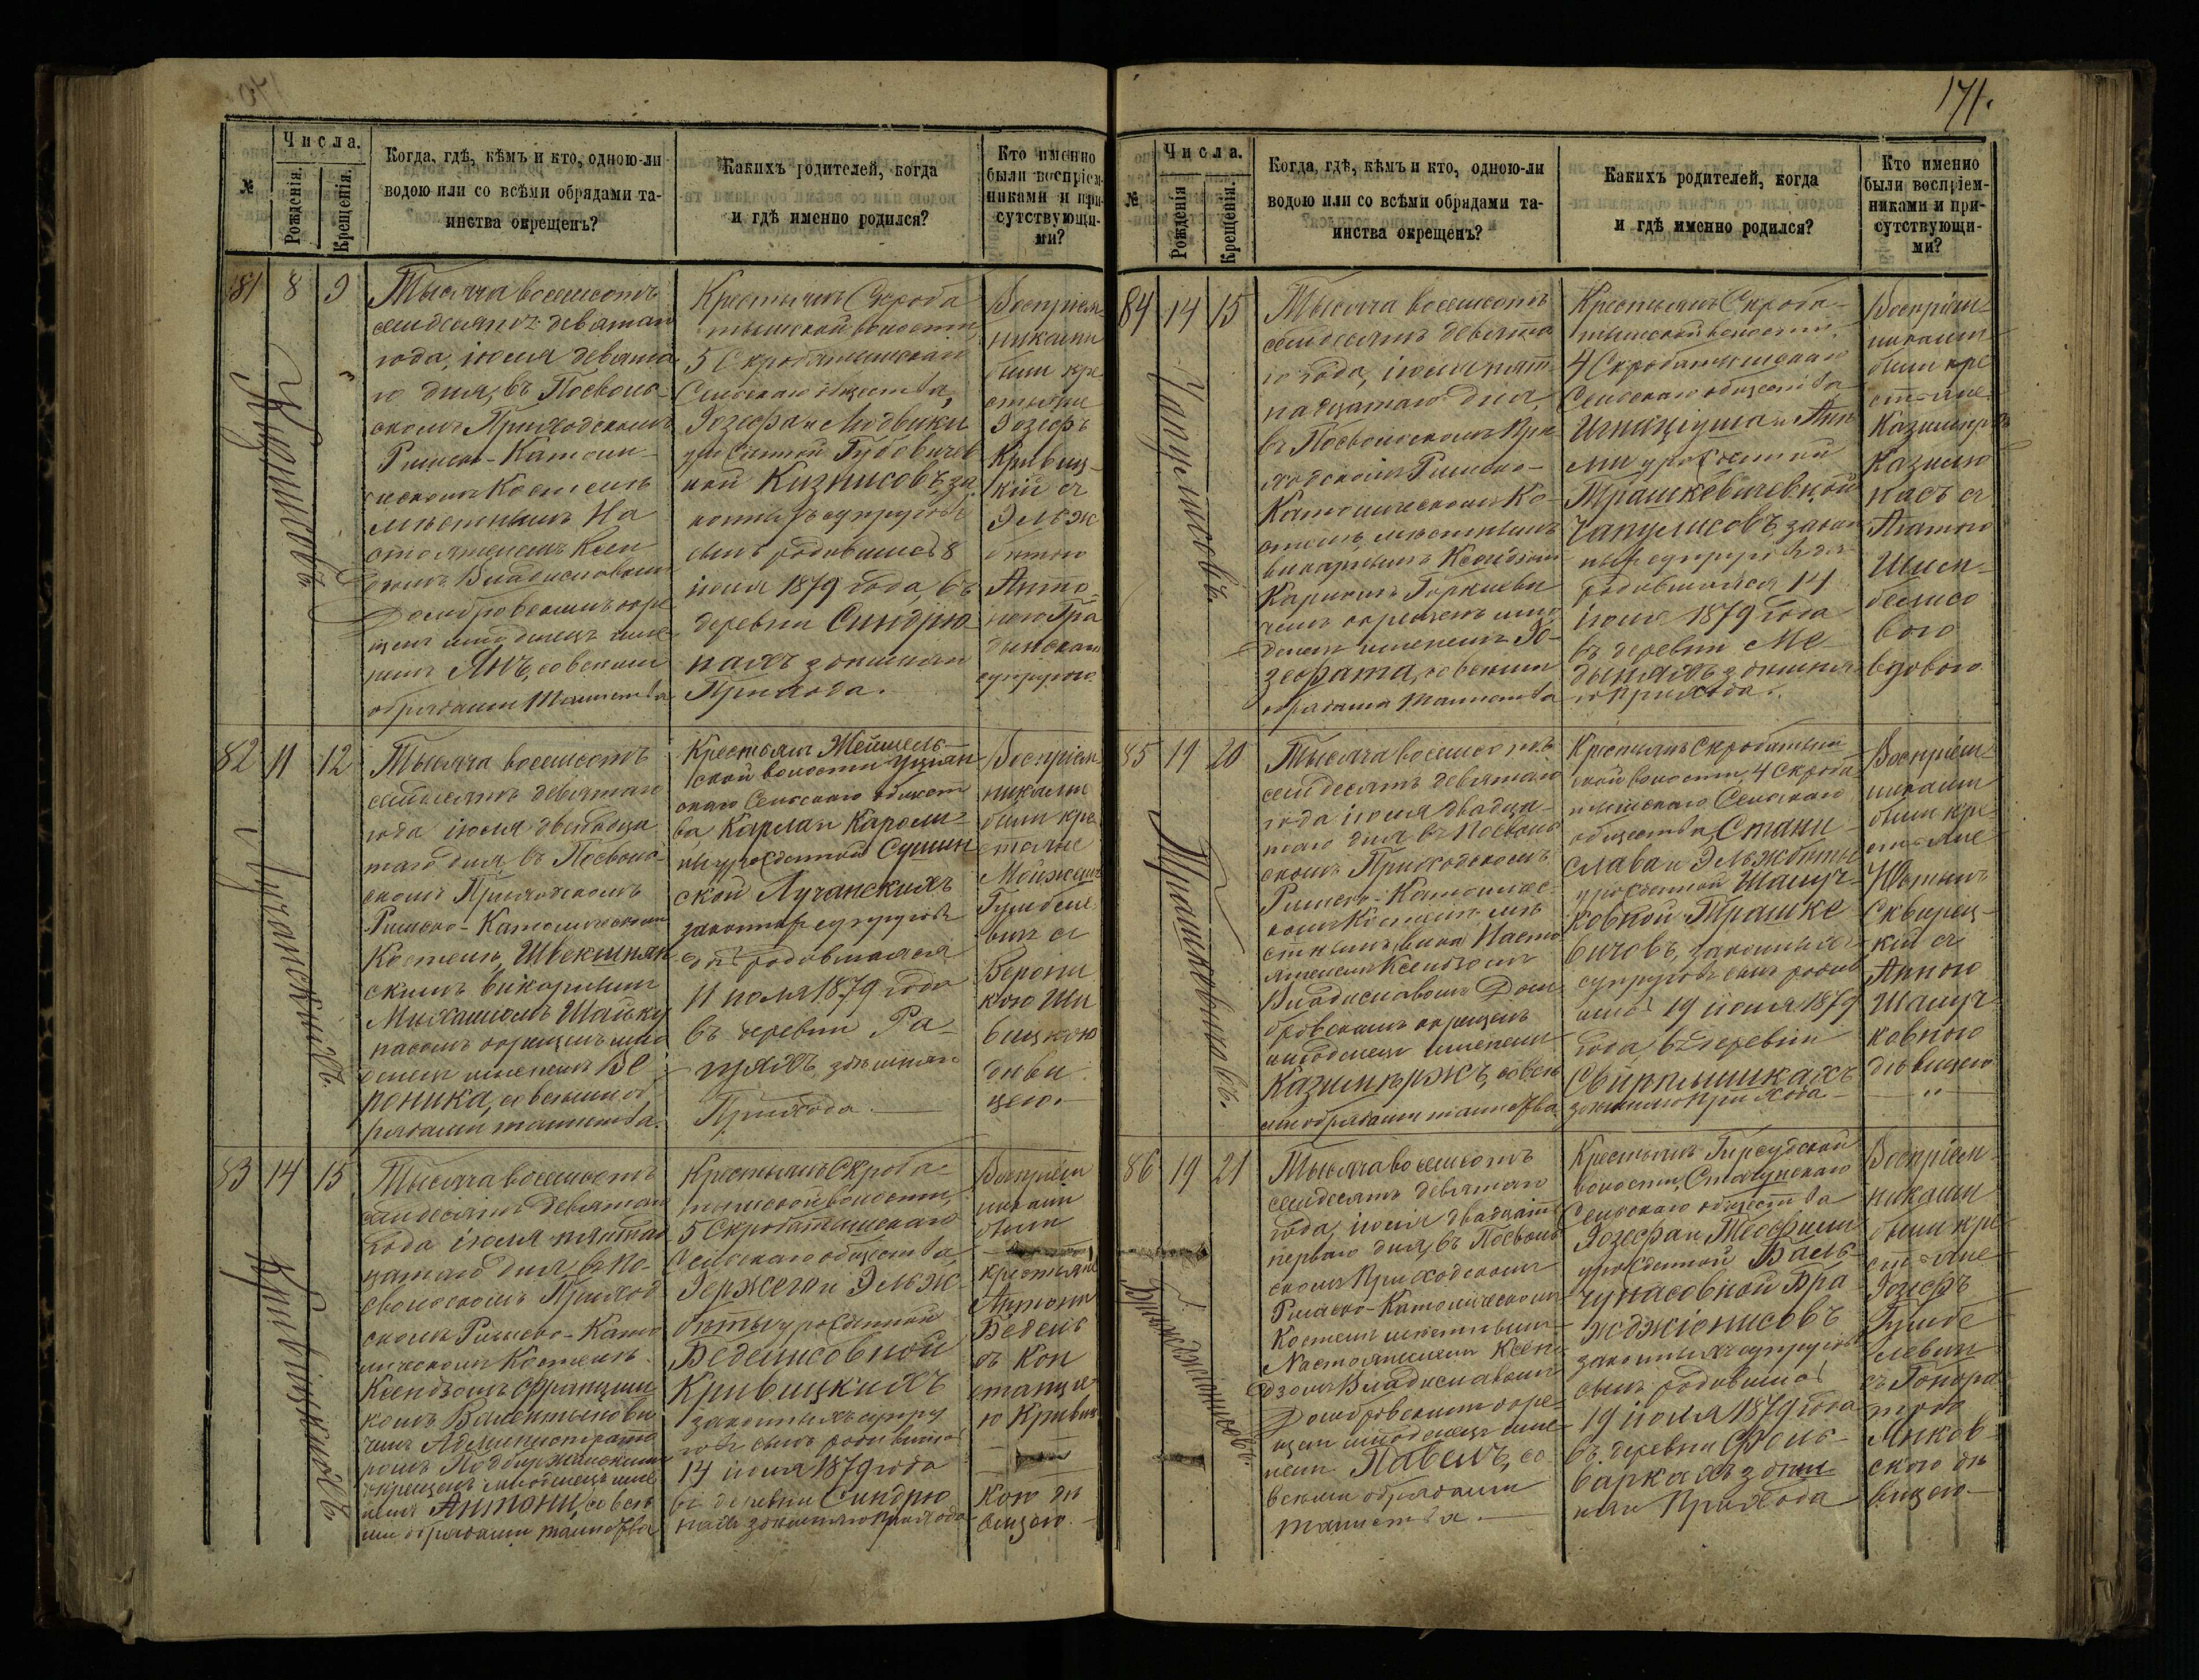 171.
№
Числа.
Рожденія.
Крещенія.
Когда, гдѣ, кѣмъ и кто, одною-ли
водою или со всѣми обрядами та-
инства окрещенъ?
Какихъ родителей, когда
и гдѣ именно родился?
Кто именно
были воспріем-
никами и при-
сутствующи-
ми?
81
8
9
Кизнисовъ
Тысяча восемсотъ
семдесятъ девятаго
года, іюля девята
го дня, въ Посволь-
скомъ Приходскомъ
Римско-Католи-
ческомъ Костелѣ
мѣстнымъ На
стоятелемъ Ксен
дзомъ Владиславомъ
Домбровскимъ окре
щенъ младенецъ име
немъ Янъ, со всѣми
обрядами таинства
Крестьянъ Скроба
тышской волости,
5 Скробатышскаго
Сельскаго общества,
Іозефа и Людвики
урожденной Губовичев
ной Кизнисовъ, за
конныхъ супруговъ
сынъ родившійся 8
іюля 1879 года, въ
деревни Синдрю
нахъ здѣшняго
Прихода.
Воспріем
никами
были кре
стьяне
Іозефъ
Кривиц-
кій съ
Эльж
бетою
Анто-
супругою
82
11
12
Лучанскихъ.
Тысяча восемсотъ
семдесятъ девятаго
года іюля двѣнадца
таго дня, въ Посволь-
скомъ Приходскомъ
Римско-Католическомъ
Костелѣ, Швекшнян
скимъ викарнымъ
окрещенъ мла
денецъ именемъ Ве
роника, со всѣми об
рядами таинства.
Крестьянъ Жеймель-
ской волости
скаго Сельскаго общест
ва Карла и Кароли-
ны урожденной
ской Лучанскихъ
законныхъ супруговъ
дочь родившаяся
11 іюля 1879 года
въ деревни Ра-
здѣшняго
Прихода.
Воспріем
никами
были кре
стьяне
съ
Верони
кою
дѣви
цею.
83
14
15
Кривицкихъ
Тысяча восемсотъ
семдесятъ девятаго
года іюля пятнад
цатаго дня, въ По-
свольскомъ Приход
скомъ Римско-Като
лическомъ Костелѣ
Ксендзомъ Францишкомъ
Администрато
ромъ
окрещенъ младенецъ име
немъ Антони, со всѣ
ми обрядами таинства
Крестьянъ Скроба-
тышской волости,
5 Скробатышскаго
Сельскаго общества,
Эльж-
бѣты урожденной
Беделисовной
Кривицкихъ
законныхъ супру
говъ сынъ родившійся
14 іюля 1879 года
въ деревни Синдрю
нахъ здѣшняго Прихода
Воспріем
никами
были
крестьяне
Антони
Бедель
съ Кон
станці
ю Кривиц
кою дѣ
вицею.
№
Числа.
Рожденія
Крещенія.
Когда, гдѣ, кѣмъ и кто, одною-ли
водою или со всѣми обрядами та-
инства окрещенъ?
Какихъ родителей, когда
и гдѣ именно родился?
Кто именно
были воспріем-
никами и при-
сутствующи-
ми?
84
14
15
Чапулисовъ.
Тысяча восемсотъ
семдесятъ девята
го года, іюля пят-
надцатаго дня,
въ Посвольскомъ При
ходскомъ Римско-
Католическомъ Ко-
стелѣ, мѣстнымъ
викарнымъ Ксендзомъ
окрещенъ мла
денецъ именемъ Іо-
зефата, со всѣми
обрядами таинства
Крестьянъ Скроба-
тышской волости,
4 Скробатышскаго
Сельскаго общества
Игнаціуша и Анѣ
ли урожденной
Трашкевичевной
Чапулисовъ, закон
ныхъ супруговъ дочь
родившаяся 14
іюля 1879 года
въ деревни Ме-
здѣшня
го прихода.
Воспріем-
никами
были кре
стьяне
Казимиръ
съ
Агатою
вдовою
85
19
20
Трашкевичовъ.
Тысяча восемсотъ
семдесятъ девятаго
года іюля двадца-
таго дня въ Посволь
скомъ Приходскомъ
Римско-Католичес-
комъ Костелѣ мѣ
стнымъ Насто
ятелемъ Ксендзомъ
Владиславомъ Дом
бровскимъ окрещенъ
младенецъ именемъ
Казимѣржъ, со всѣ
ми обрядами таинства
Крестьянъ Скробатыш
ской волости, 4 Скроба
тышскаго Сельскаго
общества, Стани-
слава и Эльжбѣты
урожденной Шалуч-
ковной Трашке
вичовъ, законныхъ
супруговъ сынъ родив
шійся 19 іюля 1879
года, въ деревни
здѣшняго Прихода
Воспріем-
никами
были кре-
стьяне
Сквирец-
кій съ
Анною
Шалуч
ковною
дѣвицею
86
19
21
Бражджіонисовъ.
Тысяча восемсотъ
семдесятъ девятаго
года, іюля двадцать
перваго дня, въ Посволь
скомъ Приходскомъ
Римско-Католическомъ
Костелѣ мѣстнымъ
Настоятелемъ Ксен-
дзомъ Владиславомъ
Домбровскимъ окре-
щенъ младенецъ име-
немъ Павелъ, со
всѣми обрядами
таинства.
Крестьянъ
волости,
Сельскаго общества
Іозефа и Теофили
урожденной Баль-
чунасовной Бра-
жджіонисовъ
законныхъ супруговъ
сынъ родившійся
19 іюля 1879 года
въ деревни Фоль-
варкахъ здѣш-
няго Прихода
Воспріем-
никами
были кре
стьяне
Іозефъ
съ Гонора
тою
Янков-
скою дѣ
вицею